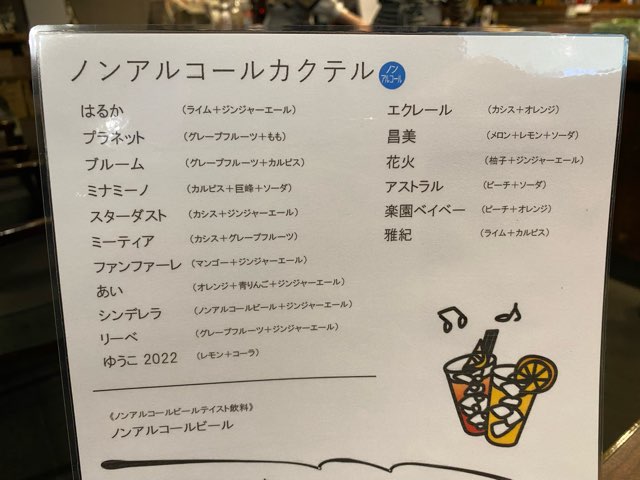 ノンアルコールカクテル ノンアルコール
はるか （ライム＋ジンジャーエール）
プラネット （グレープフルーツ＋もも）
ブルーム （グレープフルーツ＋カルピス）
ミナミーノ （カルピス＋巨峰＋ソーダ）
スターダスト （カシス＋ジンジャーエール）
ミーティア （カシス＋グレープフルーツ）
ファンファーレ （マンゴー＋ジンジャーエール）
あい （オレンジ＋青りんご＋ジンジャーエール）
シンデレラ （ノンアルコールビール＋ジンジャーエール）
リーベ （グレープフルーツ＋ジンジャーエール）
ゆうこ 2022 （レモン＋コーラ）
エクレール （カシス＋オレンジ）
昌美 （メロン＋レモン＋ソーダ）
花火 （柚子＋ジンジャーエール）
アストラル （ピーチ＋ソーダ）
楽園ベイベー （ピーチ＋オレンジ）
雅紀 （ライム＋カルピス）
《ノンアルコールビールテイスト飲料》
ノンアルコールビール